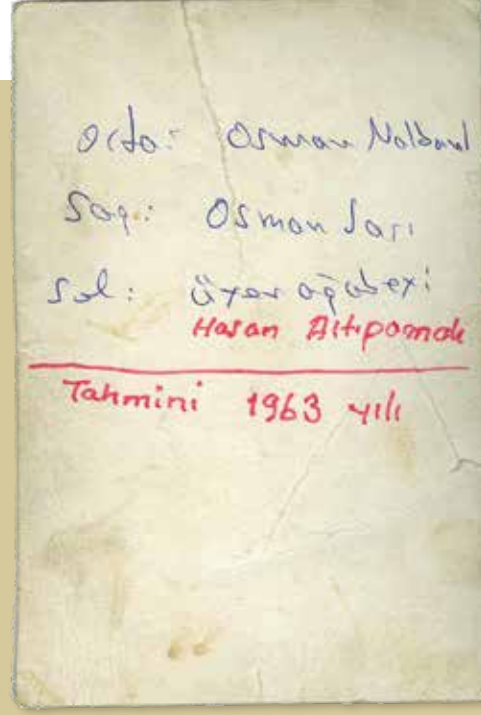 Orta: Osman Nalband
Sağ: Osman Sarı
Sol: üxer ağabexi
Hasan Altıparmak
Tahmini 1963 yılı